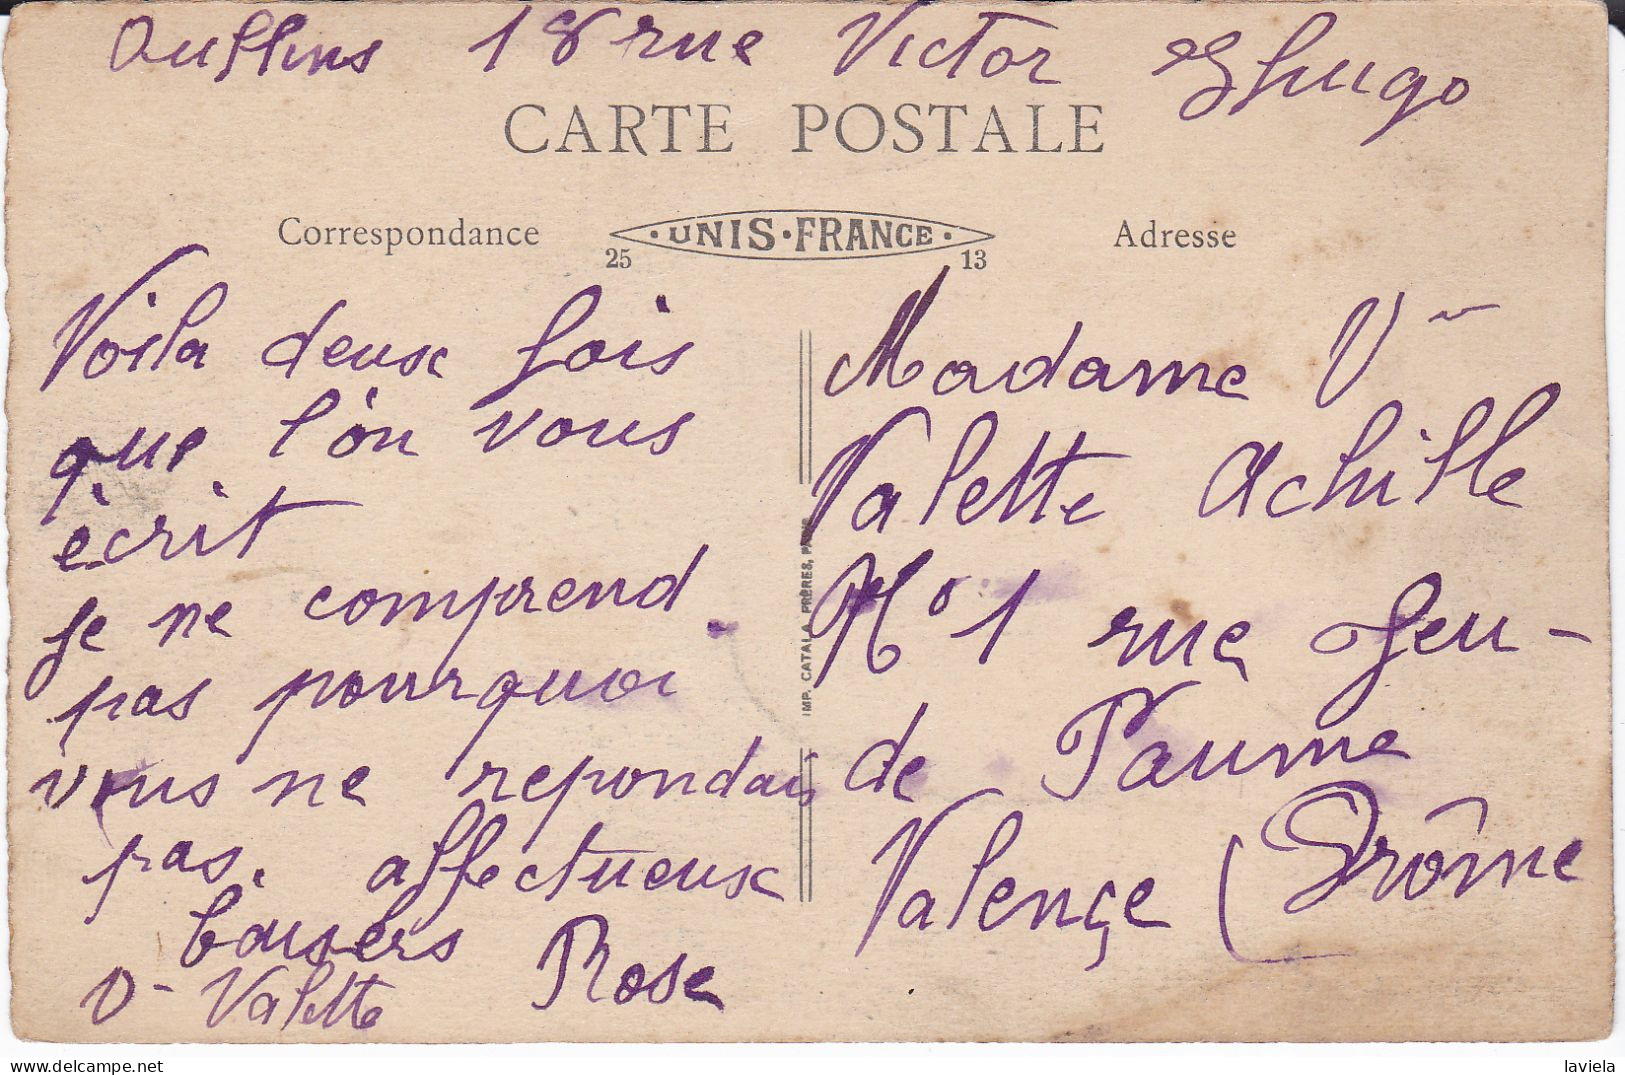 Oullins 18 rue Victor Hugo
CARTE POSTALE
Correspondance
UNIS-FRANCE
25 13
Adresse
Voila deux fois
que l'on vous
écrit
je ne comprend
pas pourquoi
vous ne repondais
pas. affectueux
baisers
Rose
V- Valette
IMP. CATALA FRÈRES, PARIS
Madame Vve
Valette Achille
No 1 rue Jeu-
de Paume
Valençe (Drôme
laviela